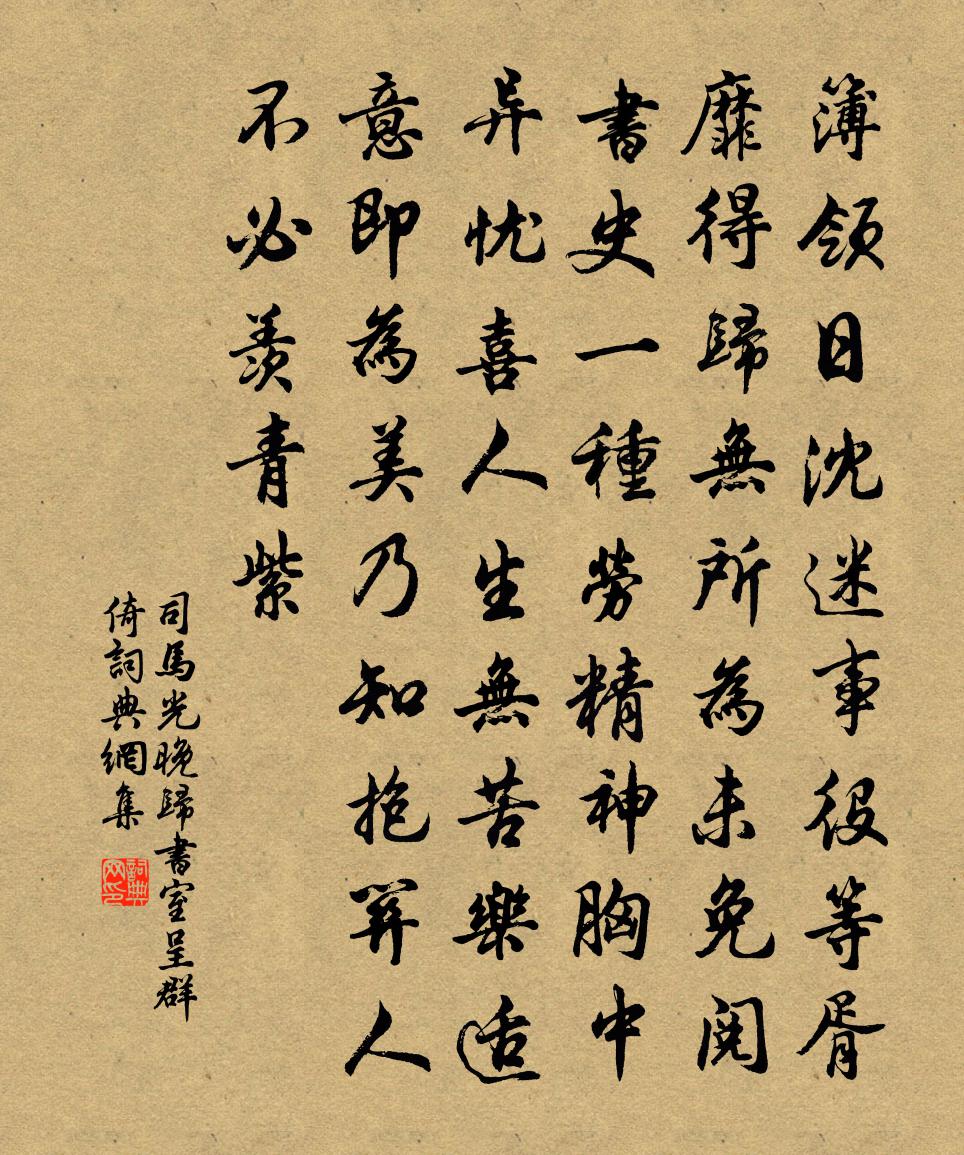 簿領日沈迷事役等胥
靡得歸無所為未免閱
書史一種勞精神胸中
异忧喜人生無苦樂适
意即為美乃知抱关人
不必羨青紫
司馬光晚歸書室呈群
倚詞典網集
詞典
网印